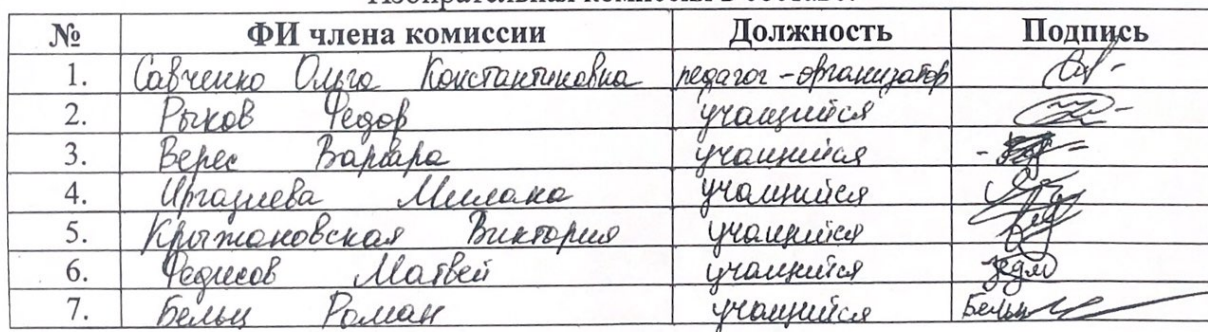 Избирательная комиссия в составе:
№ ФИ члена комиссии Должность Подпись
1. Савченко Ольга Константиновна педагог-организатор
2. Рыков Федор учащийся
3. Верес Варвара учащийся
4. Милана учащийся
5. Крыжановская Виктория учащийся
6. Федисов Матвей учащийся
7. Бельц Роман учащийся Бельц